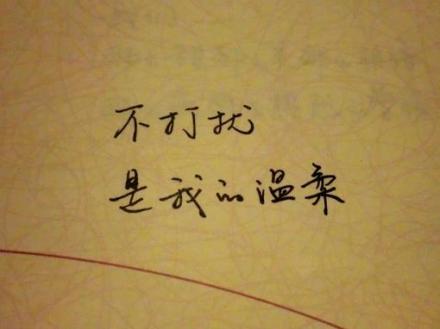 不打扰
是我的温柔